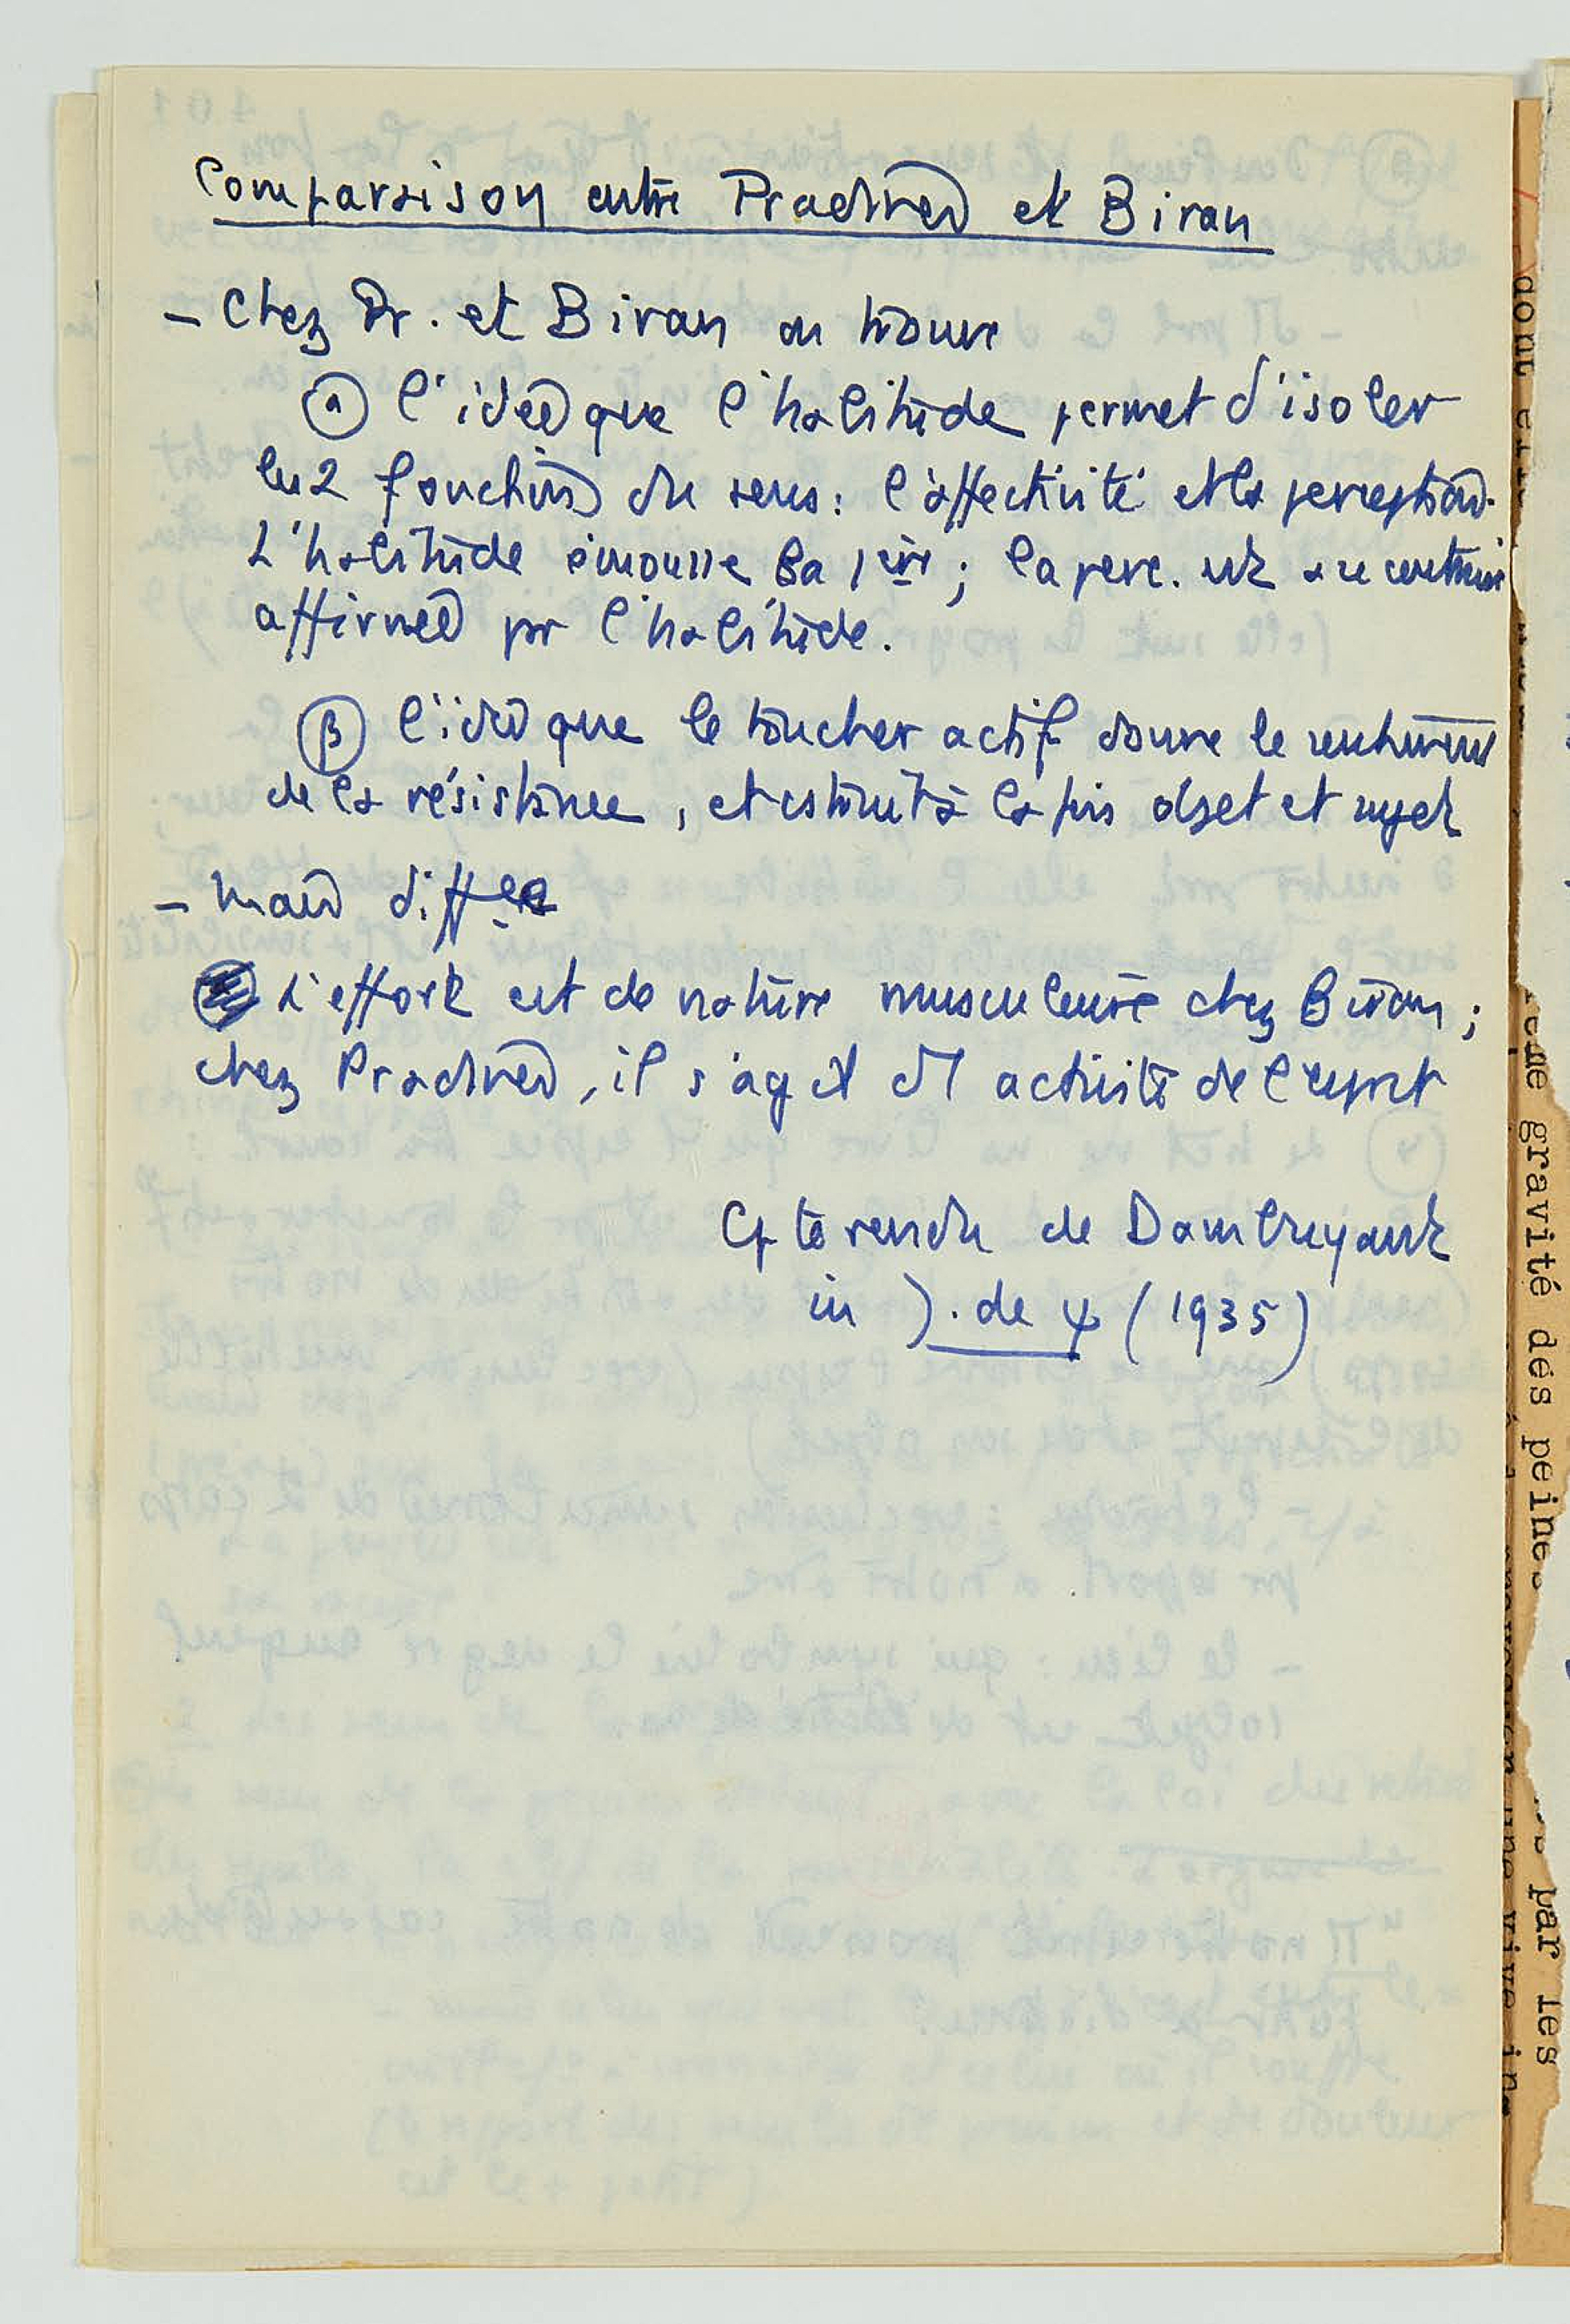 Comparaison entre Pradines et Biran
– Chez Pr. et Biran on trouve
(α) l'idée que l'habitude permet d'isoler
les 2 fonctions du sens : l'affectivité et la perception.
L'habitude émousse la 1ère ; la perc. est au contraire
affirmée pr l'habitude.
(β) l'idée que le toucher actif donne le sentiment
de la résistance, et construit à la fois objet et sujet
– mais diffce
L'effort est de nature musculaire chez Biran ;
chez Pradines, il s'agit d'1 activité de l'esprit
Cpte rendu de Dambuyant
in J. de ψ (1935)
dont
gravité des peines
par les